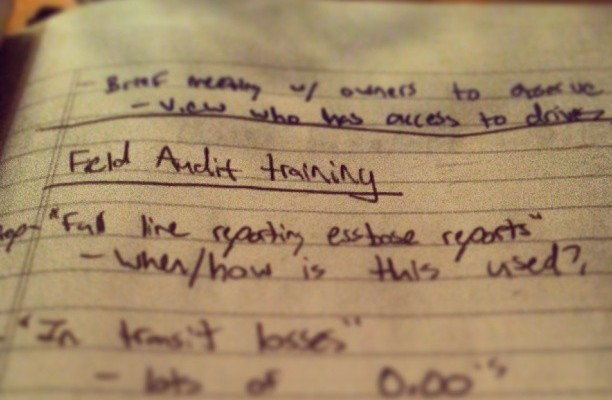 - Brief meeting w/ owners to observe
- view who has access to drives
Field Audit training
"Full line reporting essbase reports"
- when/how is this used?
- "In transit losses"
- lots of 0.00's